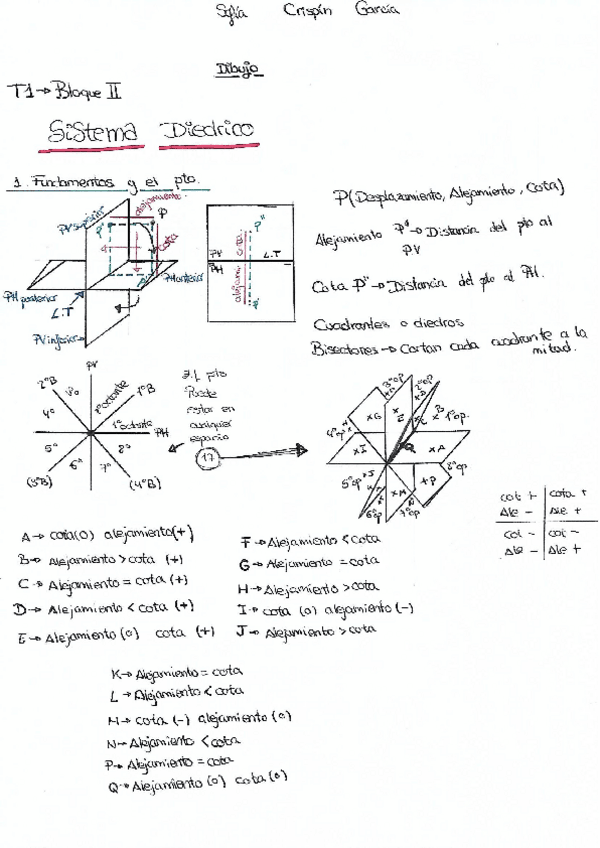 Sofía Crispín García
Dibujo
T1→ Bloque II
Sistema Diedrico
1. Fundamentos y el pto.
PV superior
alejamiento
P
P'
cota
PH posterior
PH anterior
L.T
PV inferior
P''
cota
PV
PH
L.T
alejam
P'
P(Desplazamiento, Alejamiento, Cota)
Alejamiento P'→ Distancia del pto al
PV
Cota P''→ Distancia del pto al PH.
Cuadrantes o diedros
Bisectores→ Cortan cada cuadrante a la
mitad.
PV
2ºB
1ºB
3º
4º
1º octante
PH
5º
6º
7º
8º
(3ºB)
(4ºB)
2.1 pto
Puede
estar en
cualquier
espacio
17
3ºop
2ºop
1ºop
4ºop
5ºop
6ºop
7ºop
8ºop
xG
xE
xI
xA
B
+P
cot +
cota +
Ale -
Ale +
cot -
cot -
Ale -
Ale +
A→ cota(0) alejamiento(+)
B→ Alejamiento > cota (+)
C→ Alejamiento = cota (+)
D→ Alejamiento < cota (+)
E→ Alejamiento (0) cota (+)
F→ Alejamiento < cota
G→ Alejamiento = cota
H→ Alejamiento > cota
I→ cota (0) alejamiento (-)
J→ Alejamiento > cota
K→ Alejamiento = cota
L→ Alejamiento < cota
M→ cota (-) alejamiento (0)
N→ Alejamiento < cota
P→ Alejamiento = cota
Q→ Alejamiento (0) cota (0)